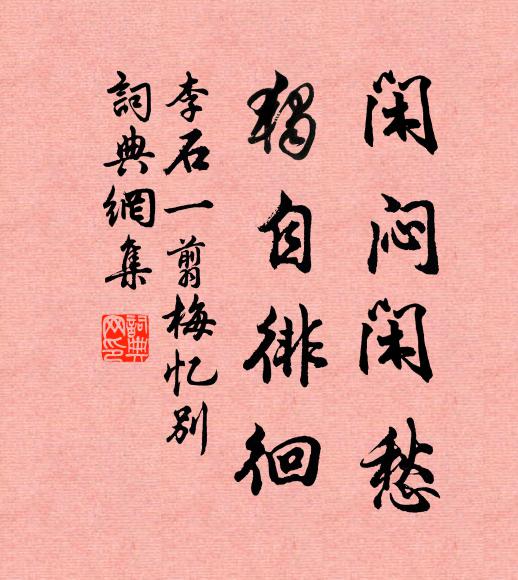 闲闷闲愁
独自徘徊
李石一剪梅忆别
詞典網集
詞典
网印